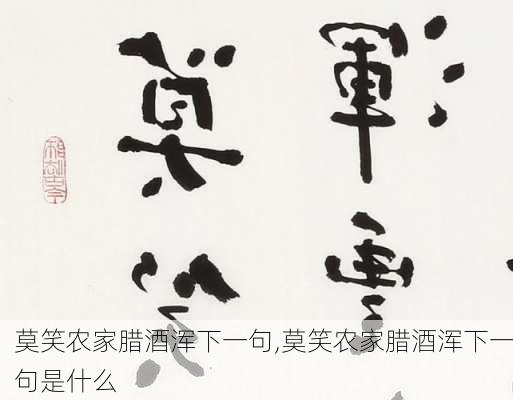 渾
莫笑
莫笑农家腊酒浑下一句,莫笑农家腊酒浑下一
句是什么